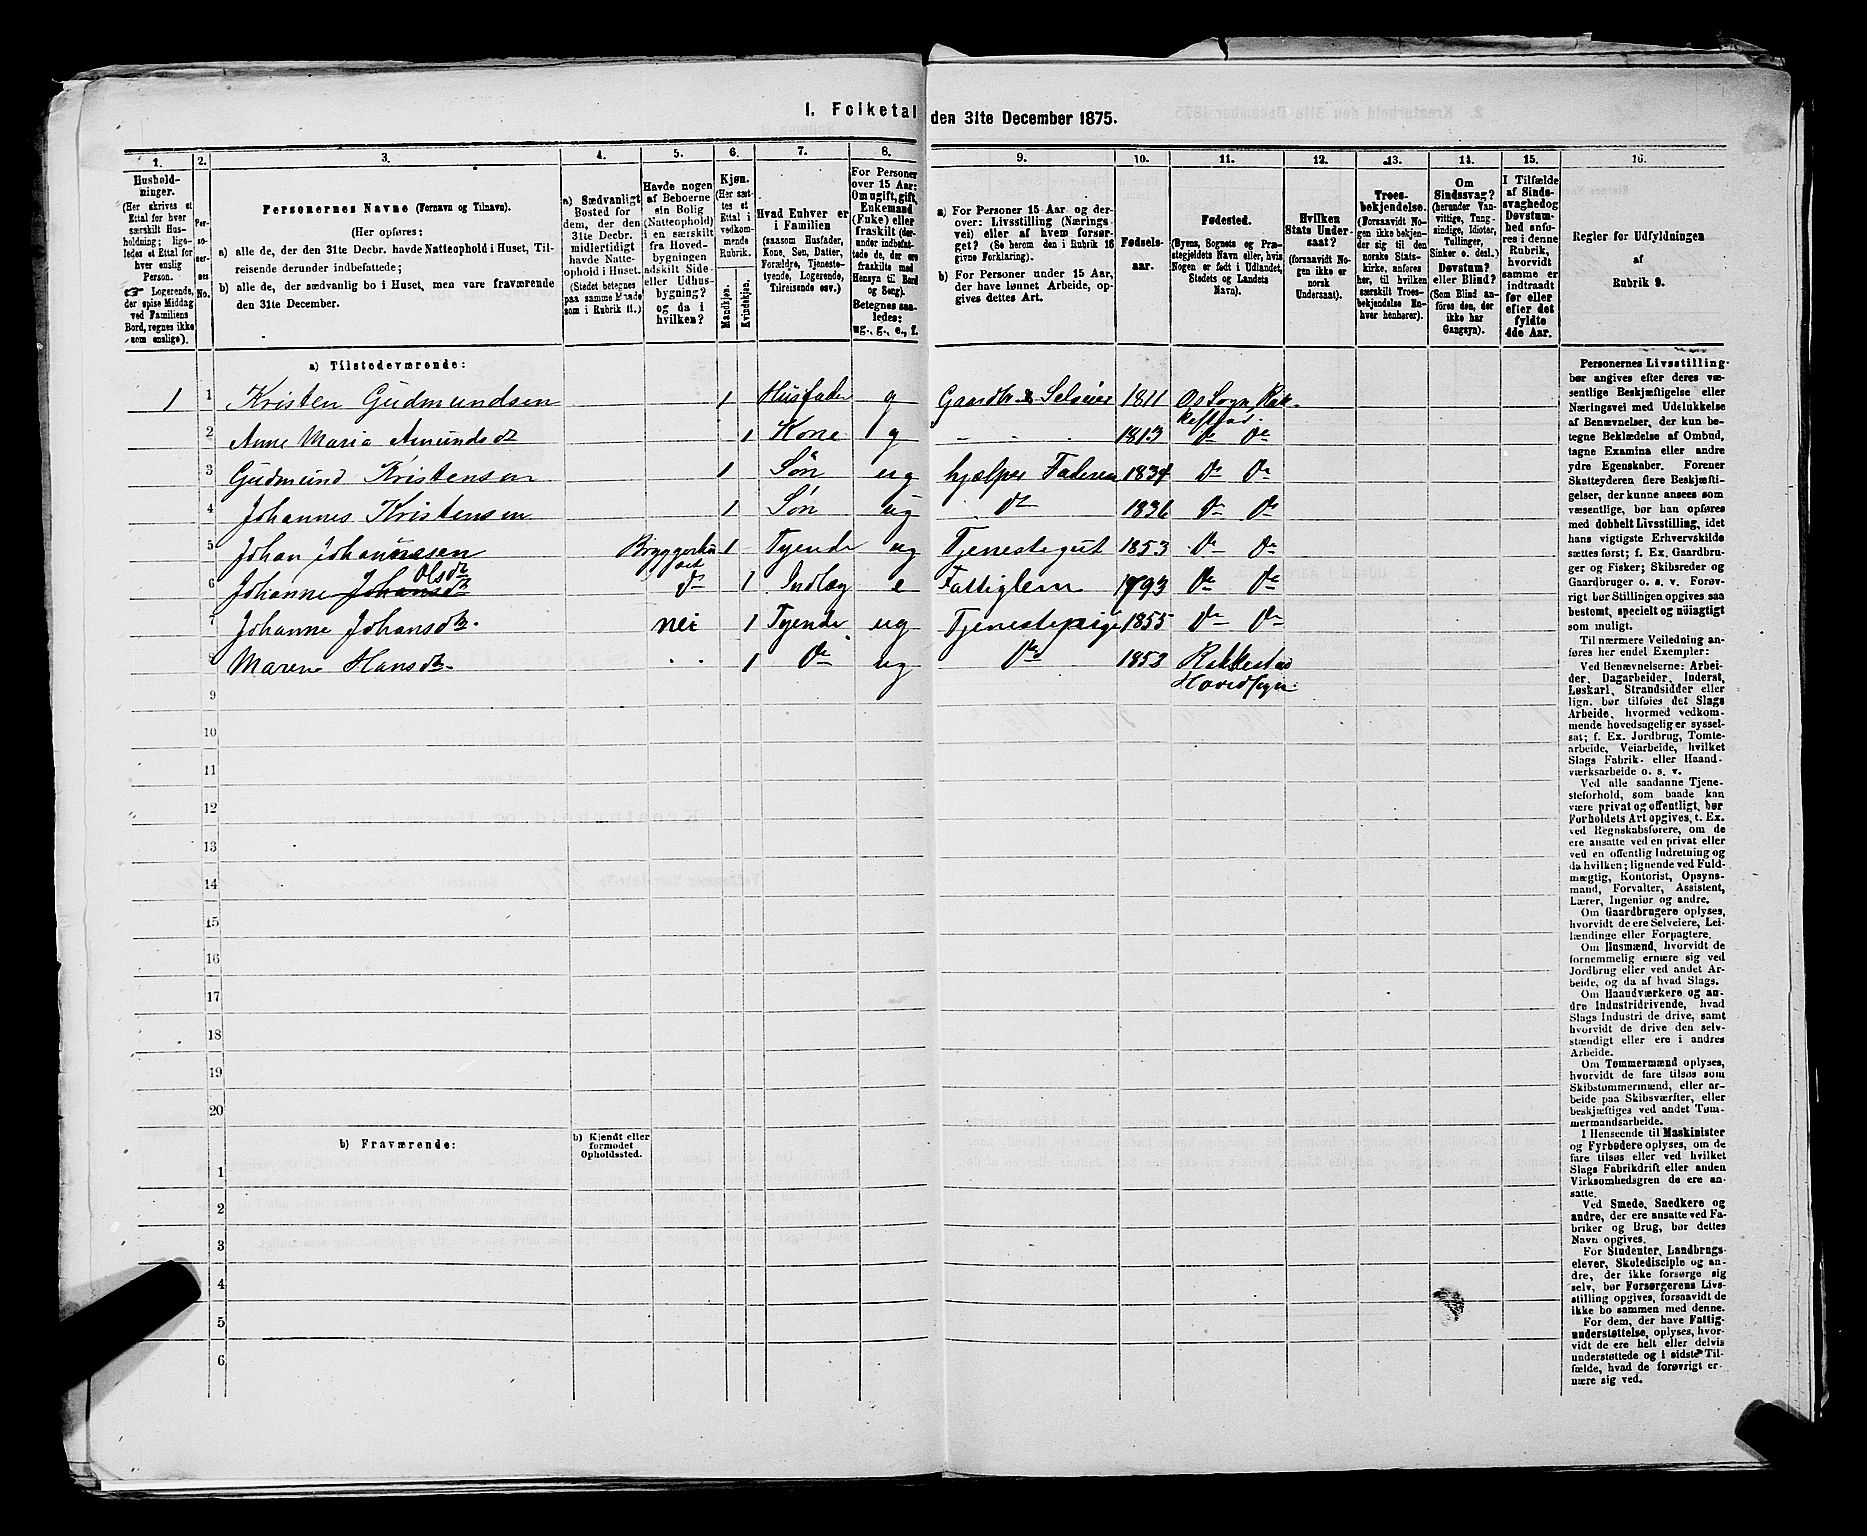 I. Folketal den 31te December 1875.
1. 2. 3. 4. 5. 6. 7. 8. 9. 10. 11. 12. 13. 14. 15. 16.
Hushold-
ninger.
(Her skrives et
Ettal for hver
særskilt Hus-
holdning; lige-
ledes et Ettal for
hver enslig
Person.
Logerende,
der spise Middag
ved Familiens
Bord, regnes ikke
som enslige).
Per-
so-
ner-
nes
No.
Personernes Navne (Fornavn og Tilnavn).
(Her opføres:
a) alle de, der den 31te Decbr. havde Natteophold i Huset, Til-
reisende derunder indbefattede;
b) alle de, der sædvanlig bo i Huset, men vare fraværende
den 31te December.
a) Sædvanligt
Bosted for
dem, der den
31te Decbr.
midlertidigt
havde Natte-
ophold i Huset.
(Stedet betegnes
paa samme Maade
som i Rubrik 11.)
Havde nogen
af Beboerne
sin Bolig
(Natteophold)
i en særskilt
fra Hoved-
bygningen
adskilt Side-
eller Udhus-
bygning?
og da i
hvilken?
Kjøn.
(Her sæt-
tes et
Ettal i
vedkom-
mende
Rubrik.
Mandkjøn.
Kvindekjøn.
Hvad Enhver er
i Familien
(saasom Husfader,
Kone, Søn, Datter,
Forældre, Tjeneste-
tyende, Logerende,
Tilreisende osv.)
For Personer
over 15 Aar:
Om ugift, gift,
Enkemand
(Enke) eller
fraskilt (der-
under indbefat-
tede de, der ere
fraskilte med
Hensyn til Bord
og Seng).
Betegnes saa-
ledes:
ug., g., e., f.
a) For Personer 15 Aar og der-
over: Livsstilling (Nærings-
vei) eller af hvem forsør-
get? (Se herom den i Rubrik 16
givne Forklaring).
b) For Personer under 15 Aar,
der have lønnet Arbeide, op-
gives dettes Art.
Fødsels-
aar.
Fødested.
(Byens, Sognets og Præ-
stegjeldets Navn eller, hvis
Nogen er født i Udlandet,
Stedets og Landets
Navn).
Hvilken
Stats Under-
saat?
(forsaavidt No-
gen ikke er
norsk
Undersaat).
Troes-
bekjendelse.
(Forsaavidt No-
gen ikke bekjen-
der sig til den
norske Stats-
kirke, anføres
her, til hvilken
særskilt Troes-
bekjendelse En-
hver henhører).
Om
Sindssvag?
(herunder Van-
vittige, Tung-
sindige, Idioter,
Tullinger,
Sinker o. desl.)
Døvstum?
eller Blind?
(Som Blind an-
føres den, der
ikke har
Gangsyn).
I Tilfælde
af Sinds-
svaghed og
Døvstum-
hed anfø-
res i denne
Rubrik,
hvorvidt
samme er
indtraadt
før eller
efter det
fyldte
4de Aar.
Regler for Udfyldningen
af
Rubrik 9.
a) Tilstedeværende:
1 1 Kristen Gudmundsen 1 Husfader g Gaardbr & Selveier 1811 Os Sogn, Rak-
kestad.
2 Anne Maria Amundsdt 1 Kone g 1813 do do
3 Gudmund Kristensen 1 Søn ug hjælper Faderen 1834 do do
4 Johannes Kristensen 1 Søn ug do 1836 do do
5 Johan Johannesen Bryggerhu- 1 Tyende ug Tjenestegut 1853 do do
set
Olsdt
6 Johanne Johansdt do 1 Indlæg e Fattiglem 1793 do do
7 Johanne Johansdt. nei 1 Tyende ug Tjenestepige 1855 do do
8 Maren Hansdt. 1 do ug do 1853 Rakkestad
Hovedsogn.
9
10
11
12
13
14
15
16
17
18
19
20
b) Fraværende:
b) Kjendt eller
formodet
Opholdssted.
1
2
3
4
5
6
Personernes Livsstilling
bør angives efter deres væ-
sentlige Beskjæftigelse eller
Næringsvei med Udelukkelse
af Benævnelser, der kun be-
tegne Beklædelse af Ombud,
tagne Examina eller andre
ydre Egenskaber. Forener
Skatteyderen flere Beskjæfti-
gelser, der kunne ansees som
væsentlige, bør han opføres
med dobbelt Livsstilling, idet
hans vigtigste Erhvervskilde
sættes først; f. Ex. Gaardbru-
ger og Fisker; Skibsreder og
Gaardbruger o. s. v. Forøv-
rigt bør Stillingen opgives saa
bestemt, specielt og nøiagtigt
som muligt.
Til nærmere Veiledning an-
føres her endel Exempler:
Ved Benævnelserne: Arbei-
der, Dagarbeider, Inderst,
Løskarl, Strandsidder eller
lign. bør tilføies det Slags
Arbeide, hvormed vedkom-
mende hovedsagelig er syssel-
sat; f. Ex. Jordbrug, Tomte-
arbeide, Veiarbeide, hvilket
Slags Fabrik- eller Haand-
værksarbeide o. s. v.
Ved alle saadanne Tjene-
steforhold, som baade kan
være privat og offentligt, bør
Forholdets Art opgives, t. Ex.
ved Regnskabsførere, om de
ere ansatte ved en privat eller
ved en offentlig Indretning og
da hvilken; lignende ved Fuld-
mægtig, Kontorist, Opsyns-
mand, Forvalter, Assistent,
Lærer, Ingeniør og andre.
Om Gaardbrugere oplyses,
hvorvidt de ere Selveiere, Lei-
lændinge eller Forpagtere.
Om Husmænd, hvorvidt de
fornemmelig ernære sig ved
Jordbrug eller ved andet Ar-
beide, og da af hvad Slags.
Om Haandværkere og an-
dre Industridrivende, hvad
Slags Industri de drive, samt
hvorvidt de drive den selv-
stændigt eller ere i andres
Arbeide.
Om Tømmermænd oplyses,
hvorvidt de fare tilsøs som
Skibstømmermænd, eller ar-
beide paa Skibsværfter, eller
beskjæftiges ved andet Tøm-
mermandsarbeide.
I Henseende til Maskinister
og Fyrbødere oplyses, om de
fare tilsøs eller ved hvilket
Slags Fabrikdrift eller anden
Virksomhedsgren de ere an-
satte.
Ved Smede, Snedkere og
andre, der ere ansatte ved Fa-
briker og Brug, bør dettes
Navn opgives.
For Studenter, Landbrugs-
elever, Skoledisciple og an-
dre, der ikke forsørge sig
selv, bør Forsørgerens Livs-
stilling opgives, forsaavidt de
ikke bo sammen med denne.
For dem, der have Fattig-
understøttelse, oplyses, hvor-
vidt de ere helt eller delvis
understøttede og i sidste Til-
fælde, hvad de forøvrigt er-
nære sig ved.